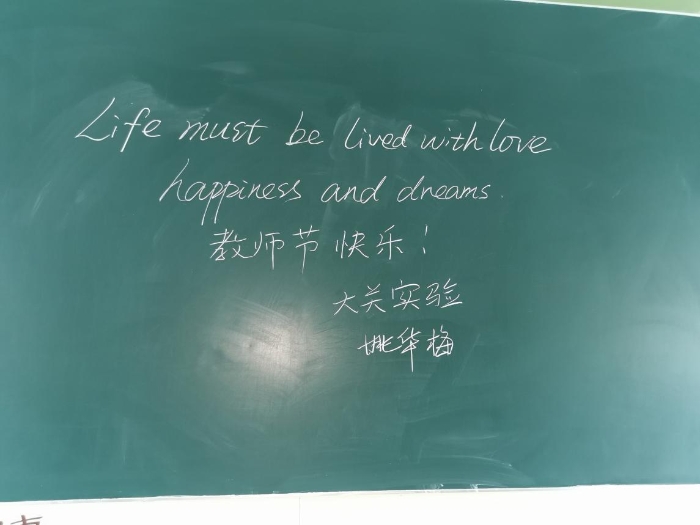 Life must be lived with love
happiness and dreams.
教师节快乐！
大关实验
姚华梅